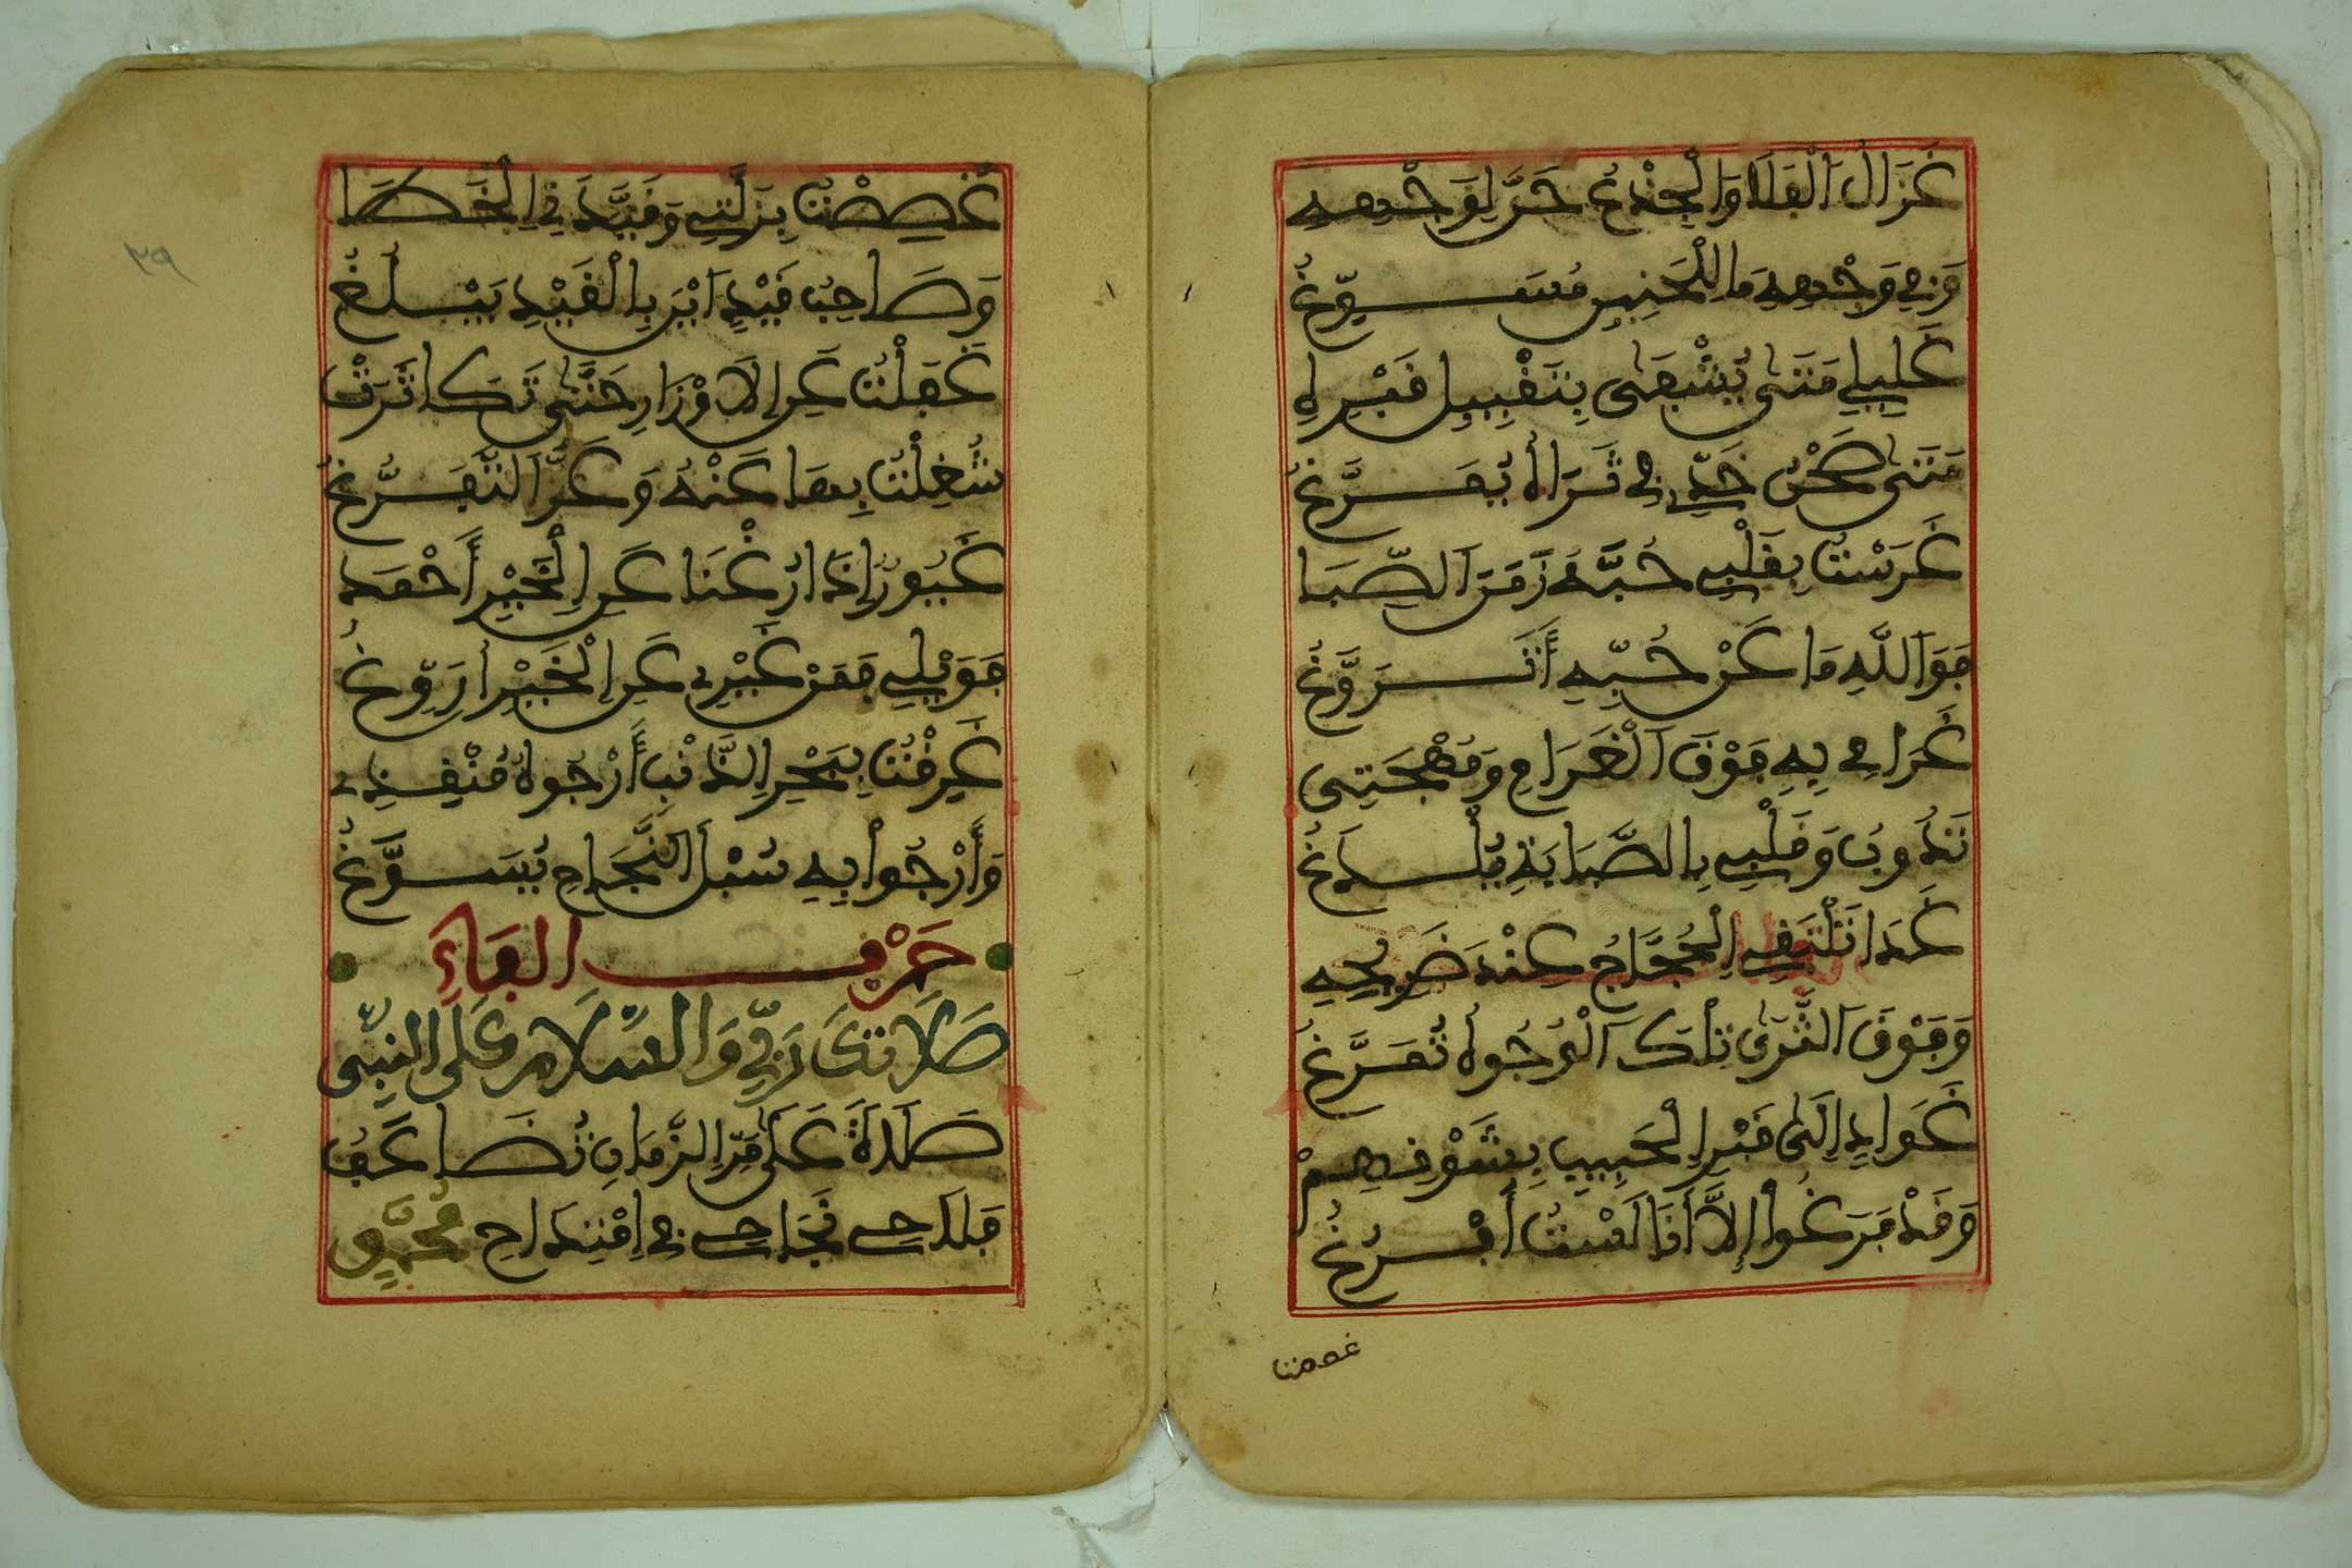 غَزَالُ الْفَلَا وَالْجِذْعُ حَنَّ لِوَجْهِهِ
وَفِي وَجْهِهِ مَا لِلْحَنِينِ مُسَوِّغُ
غَلِيلِي مَتَى يُشْفَى بِتَقْبِيلِ قَبْرِهِ
مَتَى صَحْنُ خَدِّي فِي ثَرَاهُ يُمَرَّغُ
غَرَسْتُ بِقَلْبِي حُبَّهُ زَمَنَ الصِّبَا
فَوَاللَّهِ مَا عَنْ حُبِّهِ أَتَرَوَّغُ
غَرَامِي بِهِ فَوْقَ الْغَرَامِ وَمُهْجَتِي
تَذُوبُ وَقَلْبِي بِالصَّبَابَةِ يُلْدَغُ
غَدًا تَلْتَقِي الْحُجَّاجُ عِنْدَ ضَرِيحِهِ
وَفَوْقَ الثَّرَى تِلْكَ الْوُجُوهُ تُمَرَّغُ
غَوَادٍ إِلَى قَبْرِ الْحَبِيبِ بِشَوْقِهِمْ
وَقَدْ فَرَغُوا إِلَّا أَنَا لَسْتُ أَفْرُغُ
غصصت
غُصِصْتُ بِزَلَّتِي وَقُيِّدَ فِي الْخَطَا
وَصَاحِبُ قَيْدٍ أَيْنَ بِالْقَيْدِ يَبْلُغُ
غَفَلْتُ عَنِ الْأَوْزَارِ حَتَّى تَكَاثَرَتْ
شُغِلْتُ بِهَا عَنْهُ وَعَزَّ التَّفَرُّغُ
غَيُورٌ إِذَا زُغْنَا عَنِ الْخَيْرِ أَحْمَدُ
فَوَيْلِي فَمَنْ غَيْرِي عَنِ الْخَيْرِ أُرَوِّغُ
غَرِقْتُ بِبَحْرِ الذَّنْبِ أَرْجُوهُ مُنْقِذِي
وَأَرْجُوا بِهِ سُبْلَ النَّجَاحِ يُسَوَّغُ
حَرْفُ الْفَاءِ
صَلَاتُكَ رَبِّي وَالسَّلَامُ عَلَى النَّبِيِّ
صَلَاةٌ عَلَى مَرِّ الزَّمَانِ تُضَاعَفُ
فَلَاحِي نَجَاحِي فِي امْتِدَاحِ مُحَمَّدٍ
٣٩